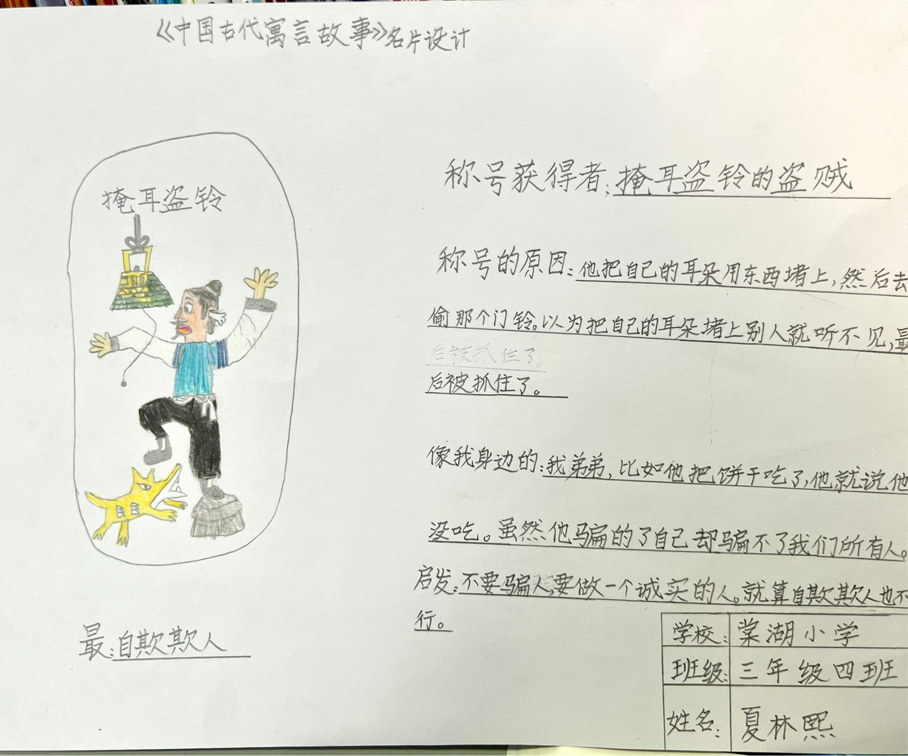 《中国古代寓言故事》名片设计
掩耳盗铃
最:自欺欺人
称号获得者:掩耳盗铃的盗贼
称号的原因:他把自己的耳朵用东西堵上,然后去
偷那个门铃。以为把自己的耳朵堵上别人就听不见,最
后被抓住了。
像我身边的:我弟弟,比如他把饼干吃了,他就说他
没吃。虽然他骗的了自己却骗不了我们所有人。
启发:不要骗人,要做一个诚实的人。就算自欺欺人也不
行。
学校:棠湖小学
班级:三年级四班
姓名:夏林熙